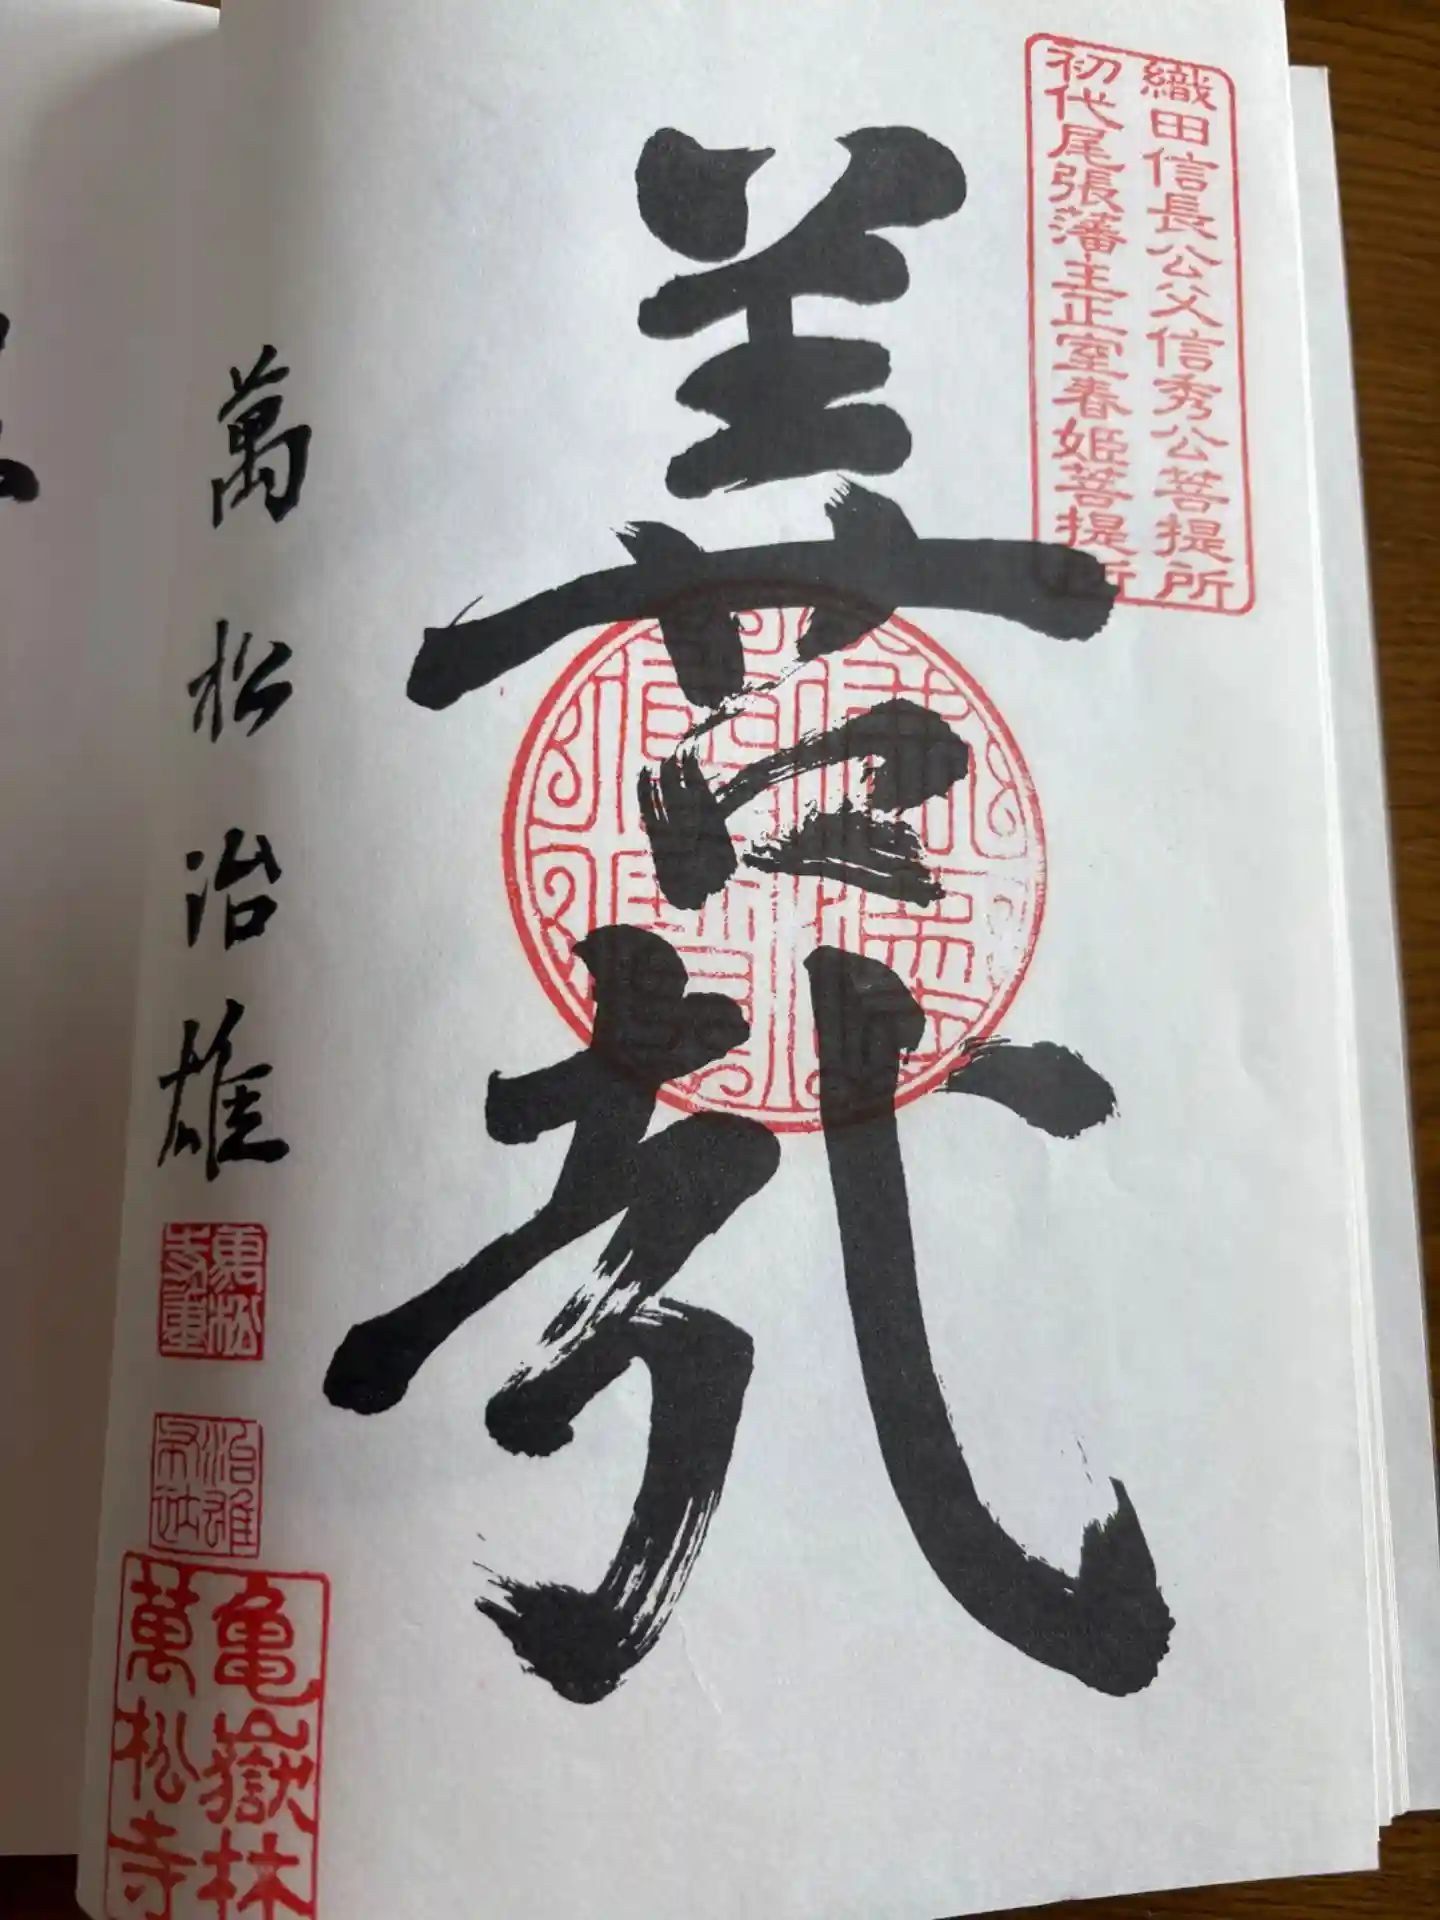 織田信長公父信秀公菩提所
初代尾張藩主正室春姫菩提所
善哉
萬松治雄
萬松
治雄
亀嶽林
萬松寺